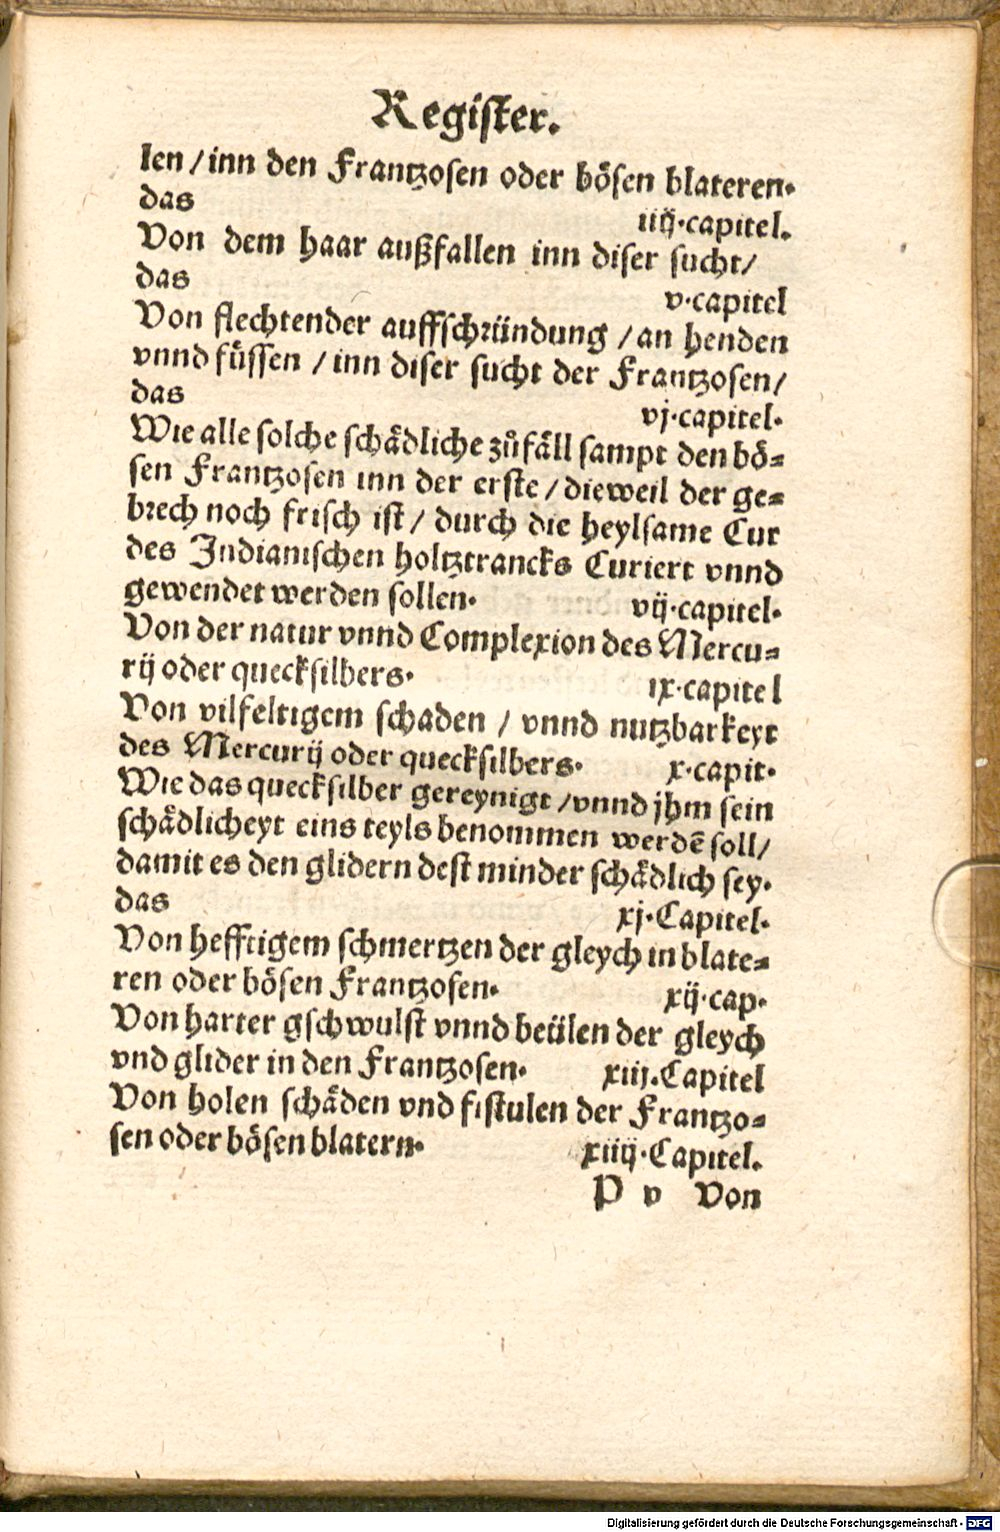 Register.
len / inn den Frantzosen oder bösen blateren.
das iiij.capitel.
Von dem haar außfallen inn diser sucht/
das v.capitel
Von flechtender auffschründung / an henden
vnnd füssen / inn diser sucht der Frantzosen/
das vj.capitel.
Wie alle solche schädliche zůfäll sampt den bö⸗
sen Frantzosen inn der erste / dieweil der ge⸗
brech noch frisch ist / durch die heylsame Cur
des Indianischen holtztrancks Curiert vnnd
gewendet werden sollen. vij.capitel.
Von der natur vnnd Complexion des Mercu⸗
rij oder quecksilbers. ix.capitel
Von vilfeltigem schaden / vnnd nutzbarkeyt
des Mercurij oder quecksilbers. x.capit.
Wie das quecksilber gereynigt / vnnd jhm sein
schädlicheyt eins teyls benommen werdē soll/
damit es den glidern dest minder schädlich sey.
das xj.Capitel.
Von hefftigem schmertzen der gleych in blate⸗
ren oder bösen Frantzosen. xij.cap.
Von harter gschwulst vnnd beülen der gleych
vnd glider in den Frantzosen. xiij.Capitel
Von holen schäden vnd fistulen der Frantzo⸗
sen oder bösen blatern. xiiij.Capitel.
P v Von
Digitalisierung gefördert durch die Deutsche Forschungsgemeinschaft - DFG